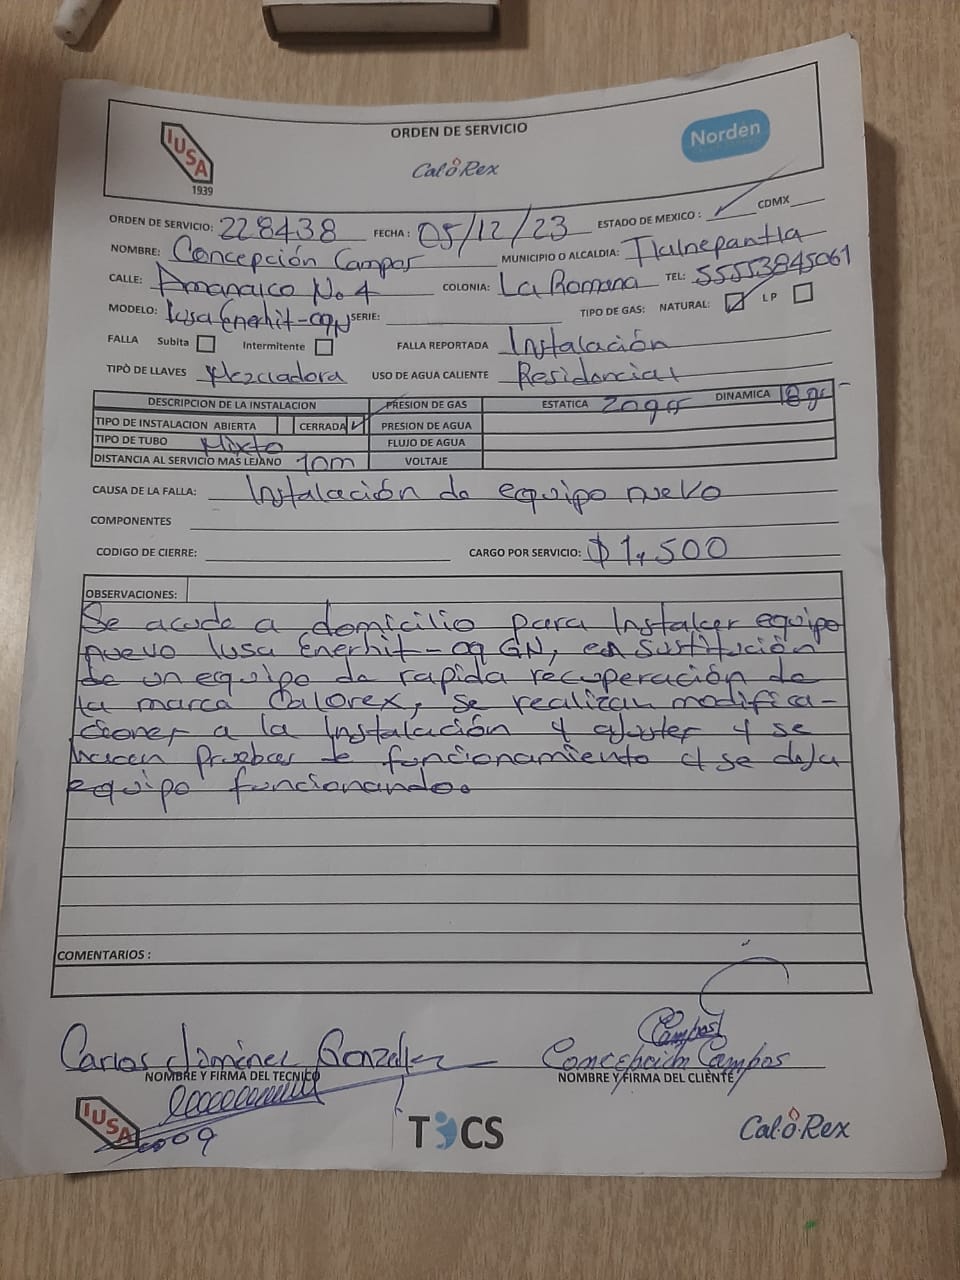 ORDEN DE SERVICIO
IUSA
1939
Cal-o-Rex
Norden
ORDEN DE SERVICIO: 228438 FECHA: 05/12/23 ESTADO DE MEXICO: ✓ CDMX
NOMBRE: Concepción Campos MUNICIPIO O ALCALDIA: Tlalnepantla
CALLE: Amanalco No. 4 COLONIA: La Romana TEL: 55553845061
MODELO: Iusa Enerhit-09N SERIE: TIPO DE GAS: NATURAL: ✓ L P
FALLA Subita Intermitente FALLA REPORTADA Instalación
TIPÒ DE LLAVES Mezcladora USO DE AGUA CALIENTE Residencial
DESCRIPCION DE LA INSTALACION PRESION DE GAS ESTATICA 20 grs DINAMICA 18 gr
TIPO DE INSTALACION ABIERTA CERRADA ✓ PRESION DE AGUA
TIPO DE TUBO Mixto FLUJO DE AGUA
DISTANCIA AL SERVICIO MAS LEJANO 10m VOLTAJE
CAUSA DE LA FALLA: Instalación de equipo nuevo
COMPONENTES
CODIGO DE CIERRE: CARGO POR SERVICIO: $ 1,500
OBSERVACIONES:
Se acude a domicilio para Instalar equipo
nuevo Iusa Enerhit-09 GN, en sustitución
de un equipo de rapida recuperación de
la marca Calorex, se realizan modifica-
ciones a la Instalación y ajustes y se
hacen Pruebas de funcionamiento y se deja
equipo funcionando.
COMENTARIOS :
Carlos Jiménez González
Campos
Concepción Campos
NOMBRE Y FIRMA DEL TECNICO
NOMBRE Y FIRMA DEL CLIENTE
IUSA
TOCS
Cal-o-Rex